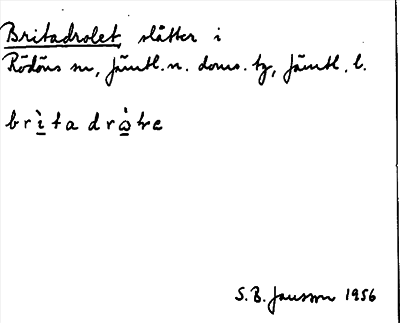 Britadrolet, slåtter i
Rödöns sn, Jämtl. n. doms. tg, Jämtl. l.
britadrωle
S. B. Jansson 1956